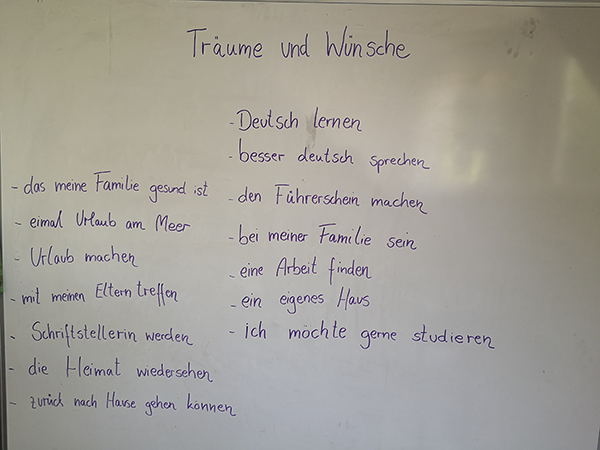 Träume und Wünsche
- das meine Familie gesund ist
- eimal Urlaub am Meer
- Urlaub machen
- mit meinen Eltern treffen
- Schriftstellerin werden
- die Heimat wiedersehen
- zurück nach Hause gehen können
- Deutsch lernen
- besser deutsch sprechen
- den Führerschein machen
- bei meiner Familie sein
- eine Arbeit finden
- ein eigenes Haus
- ich möchte gerne studieren